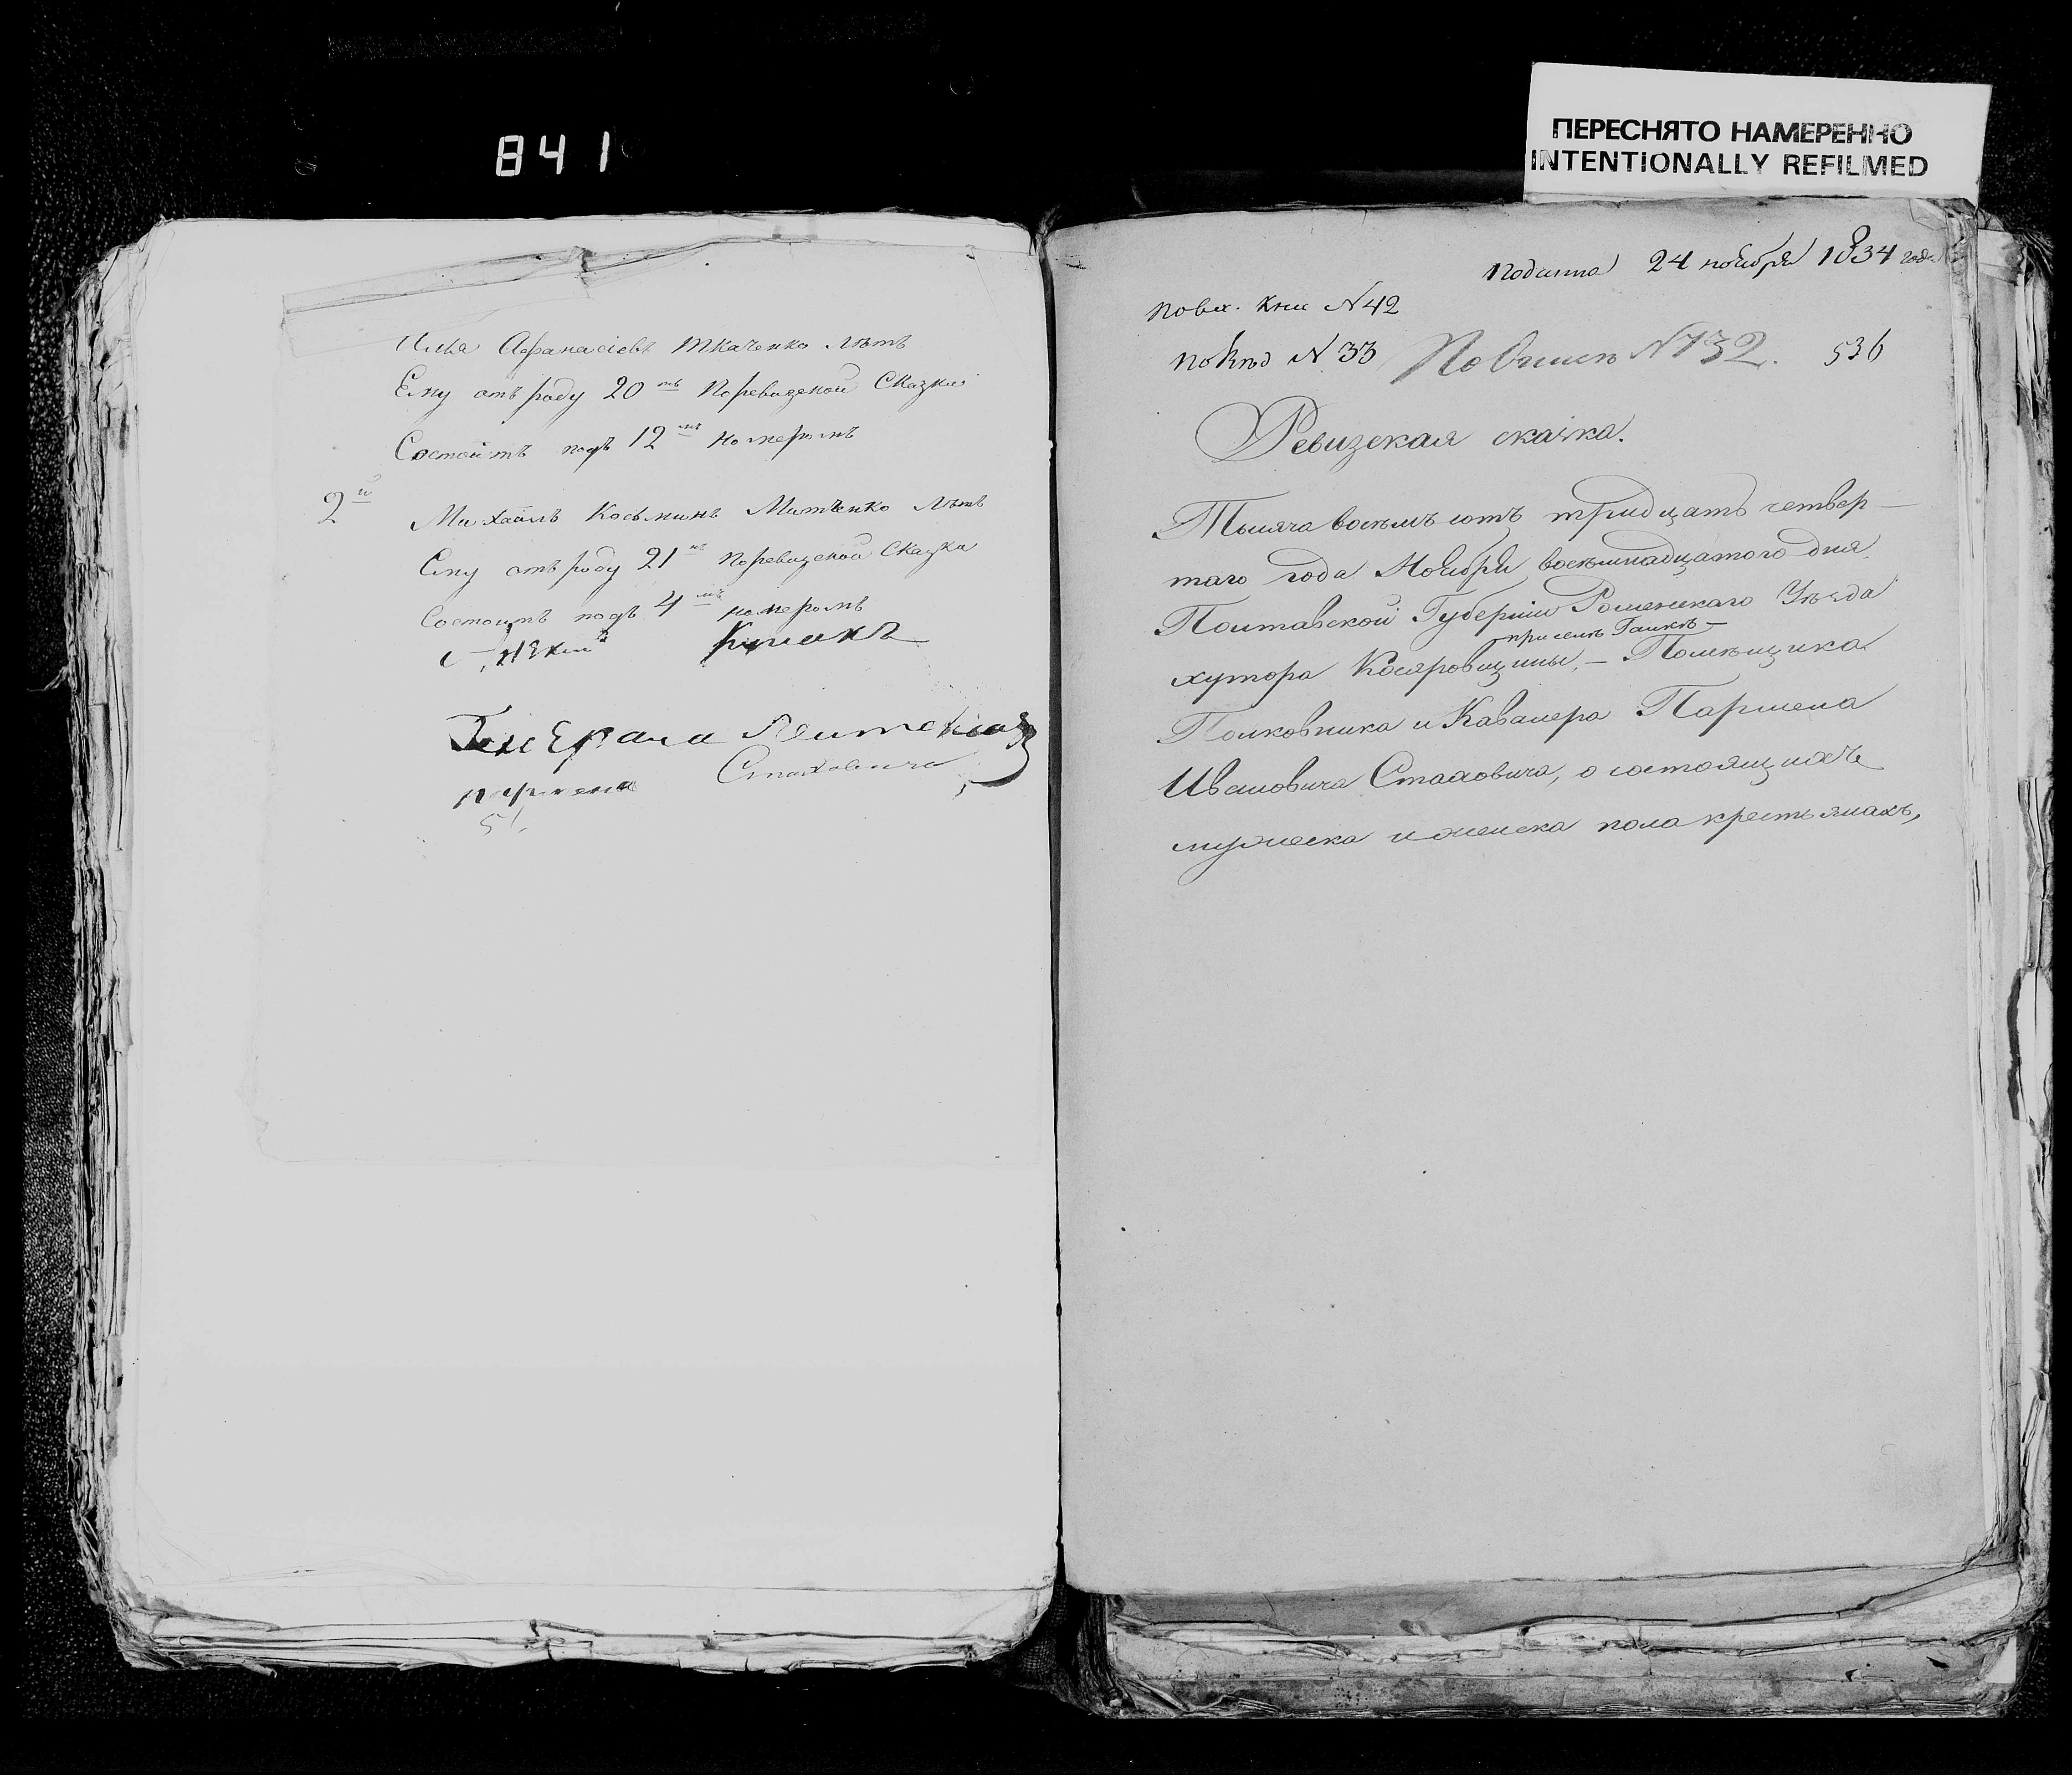 841
ПЕРЕСНЯТО НАМЕРЕННО
INTENTIONALLY REFILMED
Илья Афанасіевъ Ткаченко лѣтъ
Ему отъ роду 20 тъ Поревизской Сказки
Состоитъ подъ 12 мъ номеромъ
2й Михаилъ Косьминъ Митченко лѣтъ
Ему отъ роду 21 нъ Поревизской Сказки
Состоитъ подъ 4 мъ номеромъ
Генерала Леитенанта
Пармена Стаховича
Подана 24 ноября 1834 года
По вх. Кни N 42
N 33 По Описи N 132. 536
Ревизская сказка.
Тысяча восемъ сотъ тридцать четвер-
таго года Ноября восемнадцатаго дня
Полтавской Губерніи Роменскаго Уѣзда
при селѣ
хутора Косяровщины, – Помѣщика
Полковника и Кавалера Пармена
Ивановича Стаховича, о состоящихъ
мужеска и женска пола крестьянахъ,